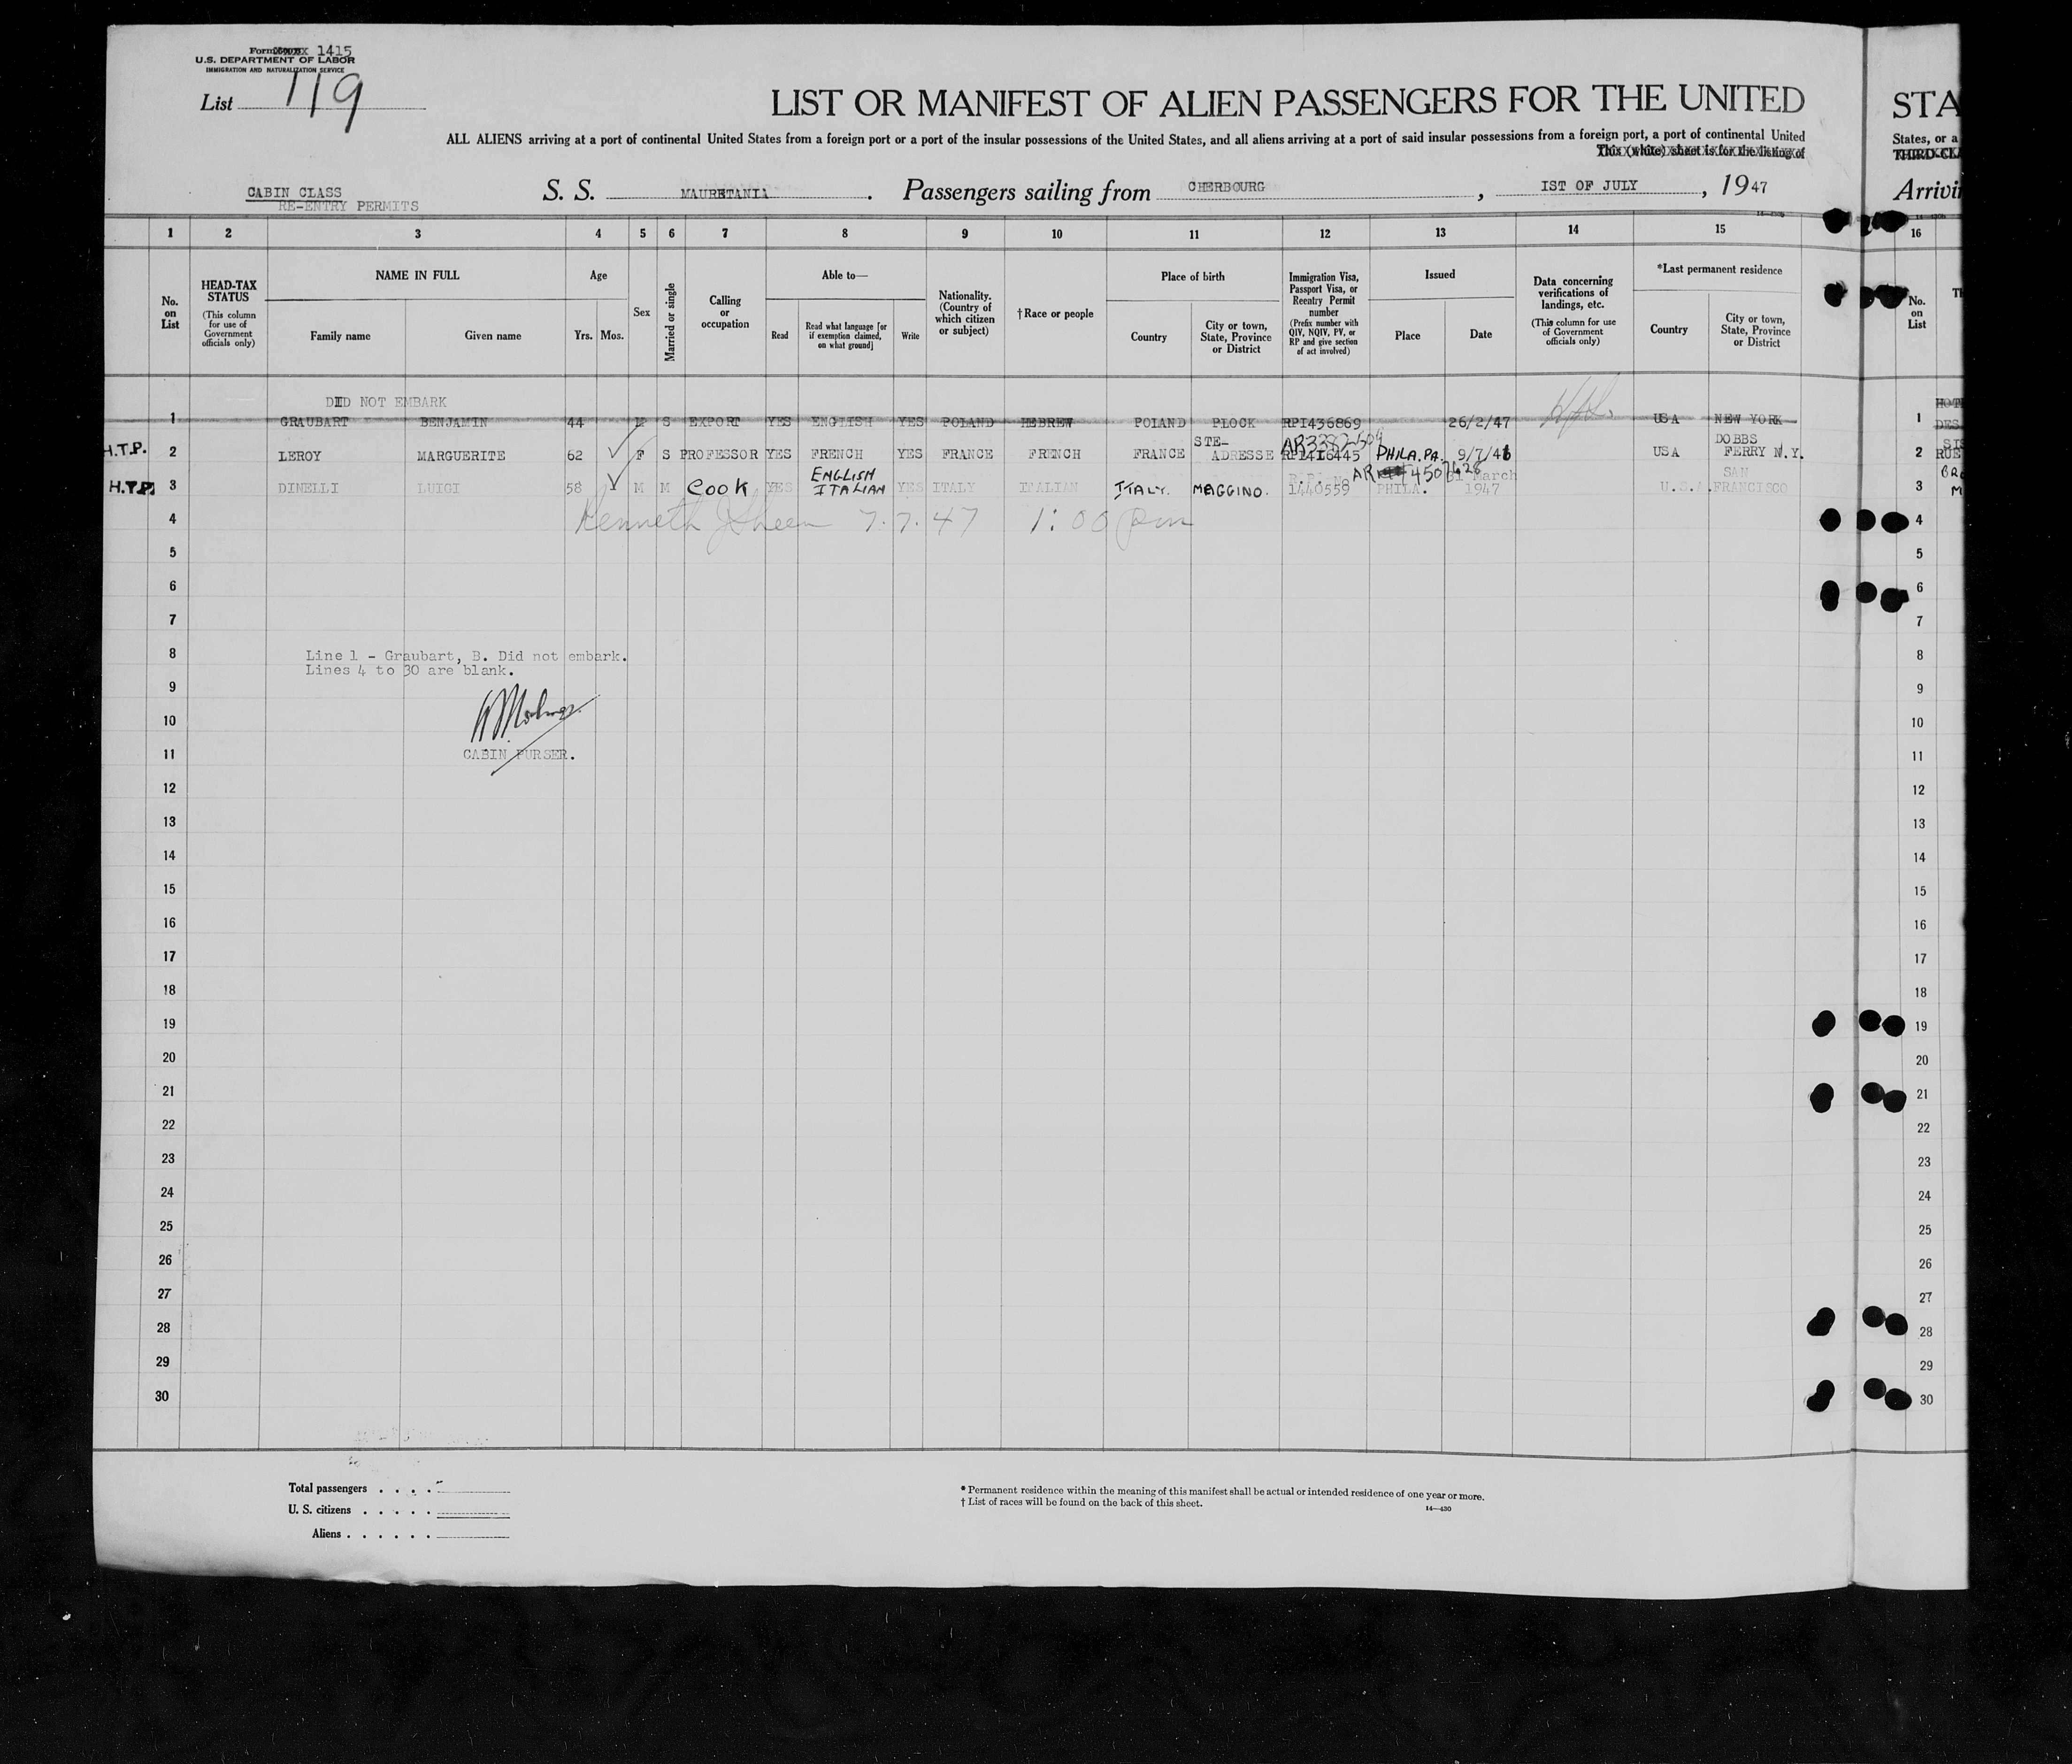 Form 1415
U.S. DEPARTMENT OF LABOR
IMMIGRATION AND NATURALIZATION SERVICE
List 119
LIST OR MANIFEST OF ALIEN PASSENGERS FOR THE UNITED STA
ALL ALIENS arriving at a port of continental United States from a foreign port or a port of the insular possessions of the United States, and all aliens arriving at a port of said insular possessions from a foreign port, a port of continental United States, or a
This (white) sheet is for the listing of THIRD-CL
CABIN CLASS
RE-ENTRY PERMITS
S. S. MAURETANIA. Passengers sailing from CHERBOURG, IST OF JULY, 1947 Arrivi
14-430b
1 2 3 4 5 6 7 8 9 10 11 12 13 14 15 16
No. on List
HEAD-TAX STATUS (This column for use of Government officials only)
NAME IN FULL
Family name Given name
Age
Yrs. Mos.
Sex
Married or single
Calling or occupation
Able to—
Read Read what language [or if exemption claimed, on what ground] Write
Nationality. (Country of which citizen or subject)
†Race or people
Place of birth
Country City or town, State, Province or District
Immigration Visa, Passport Visa, or Reentry Permit number (Prefix number with QIV, NQIV, PV, or RP and give section of act involved)
Issued
Place Date
Data concerning verifications of landings, etc. (This column for use of Government officials only)
*Last permanent residence
Country City or town, State, Province or District
No. on List
DID NOT EMBARK
1 GRAUBART BENJAMIN 44 M S EXPORT YES ENGLISH YES POLAND HEBREW POLAND PLOCK RPI436869 26/2/47 USA NEW YORK 1
H.T.P. 2 LEROY MARGUERITE 62 F S PROFESSOR YES FRENCH YES FRANCE FRENCH FRANCE STE-ADRESSE PHILA.PA. 9/7/46 USA DOBBS FERRY N.Y. 2
H.T.P. 3 DINELLI LUIGI 58 M M COOK YES ENGLISH ITALIAN YES ITALY ITALIAN ITALY. MAGGINO. 1440559 AR 4507628 PHILA. 31 March 1947 U.S.A. SAN FRANCISCO 3
4 Kenneth J Sheen 7.7.47 1:00 pm 4
5 5
6 6
7 7
8 Line 1 - Graubart, B. Did not embark. 8
Lines 4 to 30 are blank.
9 9
10 10
11 CABIN PURSER. 11
12 12
13 13
14 14
15 15
16 16
17 17
18 18
19 19
20 20
21 21
22 22
23 23
24 24
25 25
26 26
27 27
28 28
29 29
30 30
Total passengers
U. S. citizens
Aliens
* Permanent residence within the meaning of this manifest shall be actual or intended residence of one year or more.
† List of races will be found on the back of this sheet.
14—430